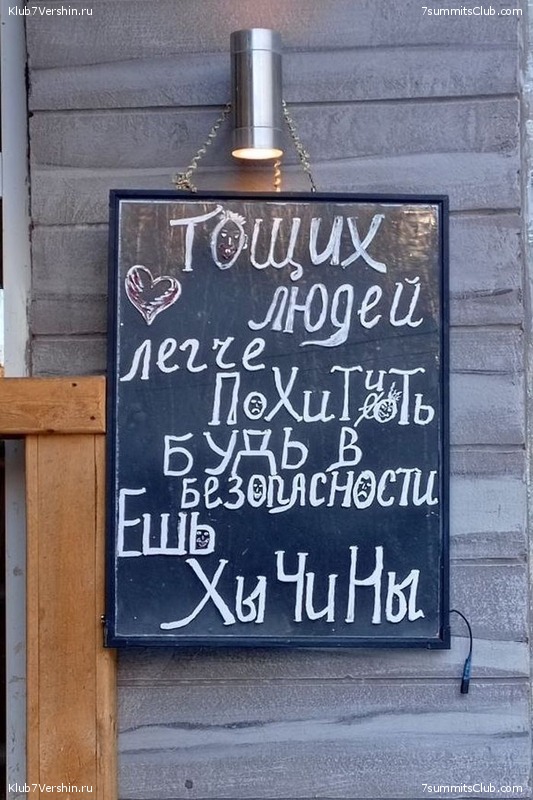 Klub7Vershin.ru 7summitsClub.com
Тощих
людей
легче
Похитить
будь в
безопасности
Ешь
ХыЧиНы
Klub7Vershin.ru 7summitsClub.com